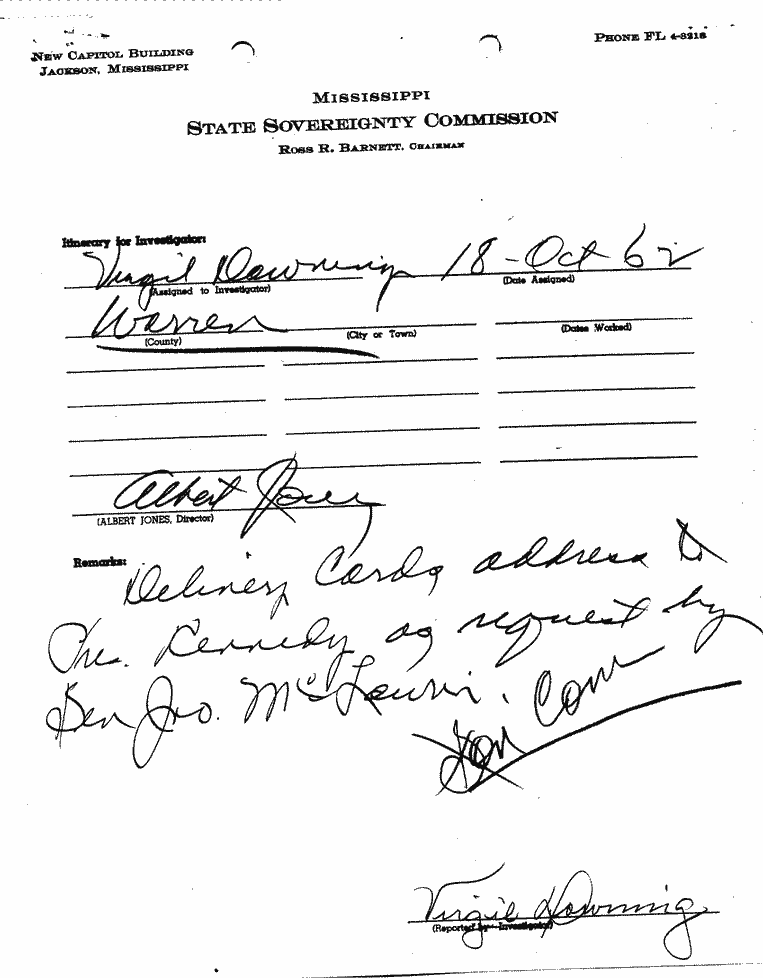 NEW CAPITOL BUILDING
JACKSON, MISSISSIPPI
PHONE FL 4-3218
MISSISSIPPI
STATE SOVEREIGNTY COMMISSION
ROSS R. BARNETT, CHAIRMAN
Itinerary for Investigator:
Virgil Downing 18-Oct-62
(Assigned to Investigator) (Date Assigned)
Warren
(County) (City or Town) (Dates Worked)
Albert Jones
(ALBERT JONES, Director)
Remarks:
Delivery Cards address to
Pres. Kennedy as request by
Sen Jno. McLaurin.
Com
Virgil Downing
(Reported by—Investigator)